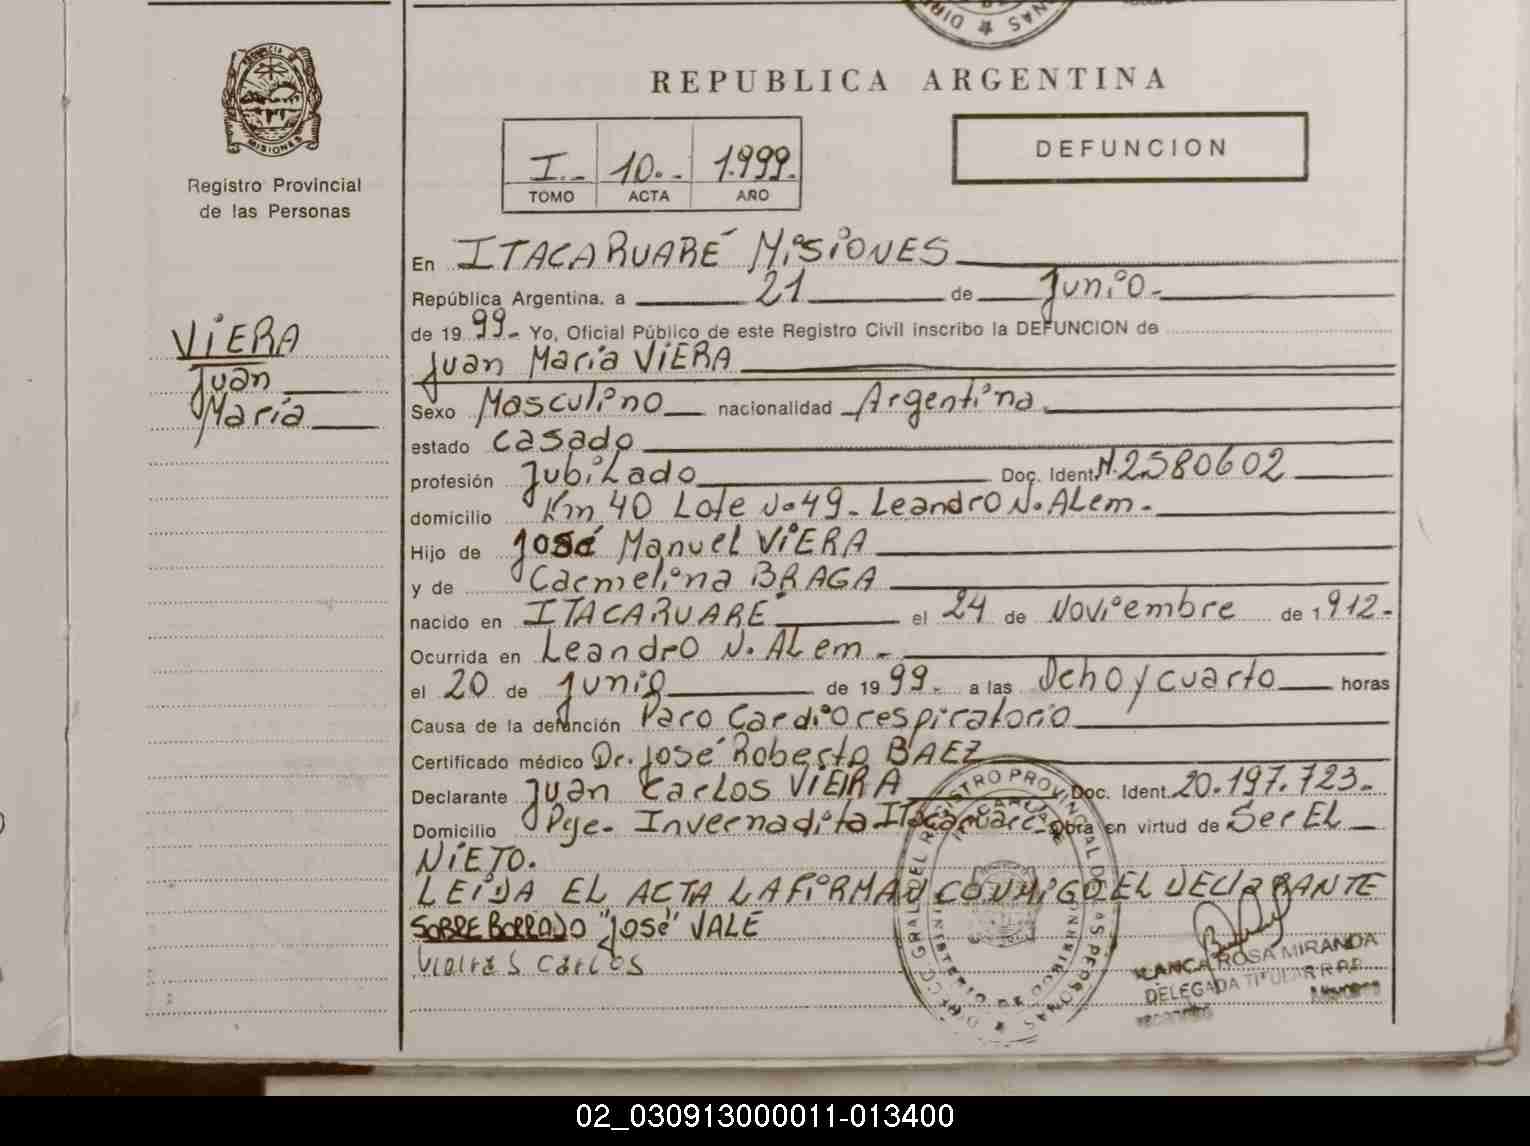 REPUBLICA ARGENTINA
PROVINCIA DE
MISIONES
Registro Provincial
de las Personas
I.- 10.- 1.999.-
TOMO ACTA AÑO
DEFUNCION
VIERA
Juan
María
En ITACARUARÉ MISIONES
República Argentina, a 21 de Junio.-
de 19 99.- Yo, Oficial Público de este Registro Civil inscribo la DEFUNCION de
Juan María VIERA
Sexo Masculino nacionalidad Argentina.
estado casado
profesión Jubilado Doc. Ident. N.2580602
domicilio Km 40 Lote N.49- Leandro N. ALem.-
Hijo de José Manuel VIERA
y de Carmelina BRAGA
nacido en ITACARUARÉ el 24 de Noviembre de 1912.-
Ocurrida en Leandro N. ALem.-
el 20 de junio de 19 99.- a las Ocho y cuarto horas
Causa de la defunción Paro Cardiorespiratorio
Certificado médico Dr. José Roberto BAEZ
Declarante Juan Carlos VIEIRA Doc. Ident. 20.197.723.-
Domicilio Pje. Invernadita Itacaruaré- Obra en virtud de Ser EL
NIETO.
LEIDA EL ACTA LA FIRMAN CONMIGO EL DECLARANTE
SOBRE BORRADO "José" VALE
Vieira S Carlos
BLANCA ROSA MIRANDA
DELEGADA TITULAR R.P.P.
Misiones
02_030913000011-013400